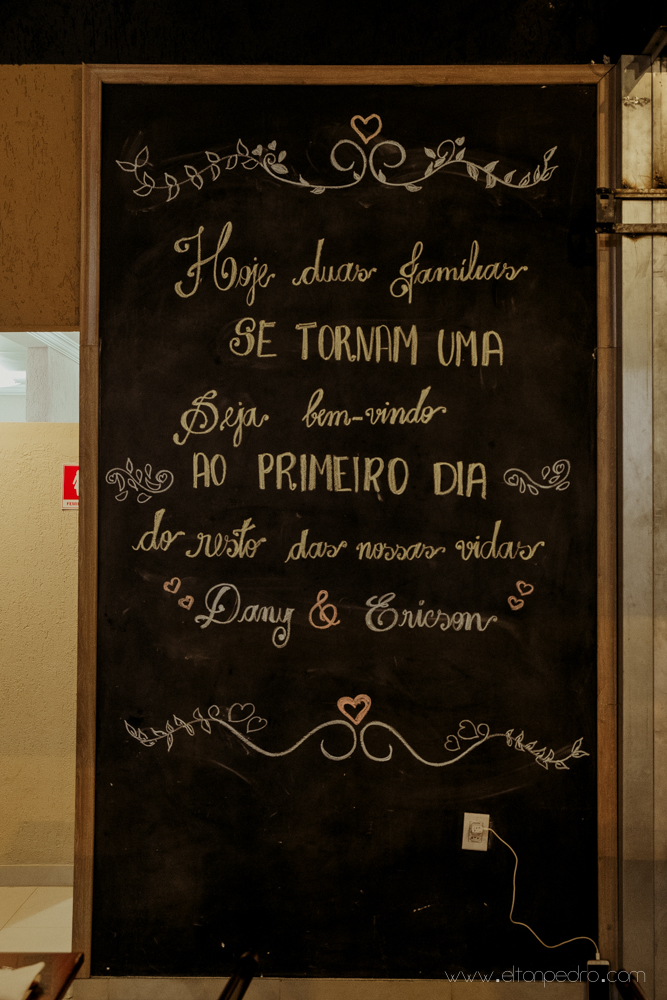 Hoje duas famílias
SE TORNAM UMA
Seja bem-vindo
AO PRIMEIRO DIA
do resto das nossas vidas
Dany & Ericson
www.eltonpedro.com